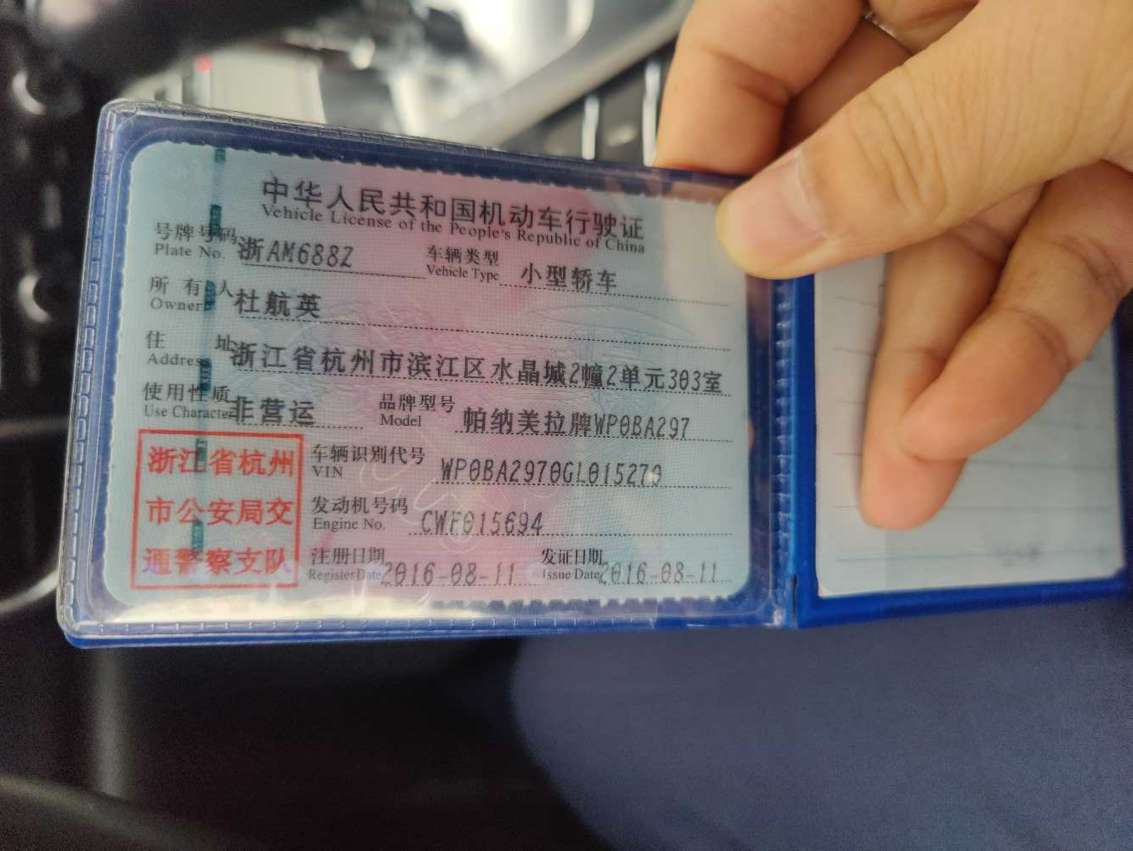 中华人民共和国机动车行驶证
Vehicle License of the People's Republic of China
号牌号码 浙AM688Z 车辆类型 小型轿车
Plate No. Vehicle Type
所有人 杜航英
Owner
住址 浙江省杭州市滨江区水晶城2幢2单元303室
Address
使用性质 非营运 品牌型号 帕纳美拉牌WP0BA297
Use Character Model
浙江省杭州
市公安局交
通警察支队
车辆识别代号 WP0BA2970GL015270
VIN
发动机号码 CWF015694
Engine No.
注册日期 2016-08-11 发证日期 2016-08-11
Register Date Issue Date